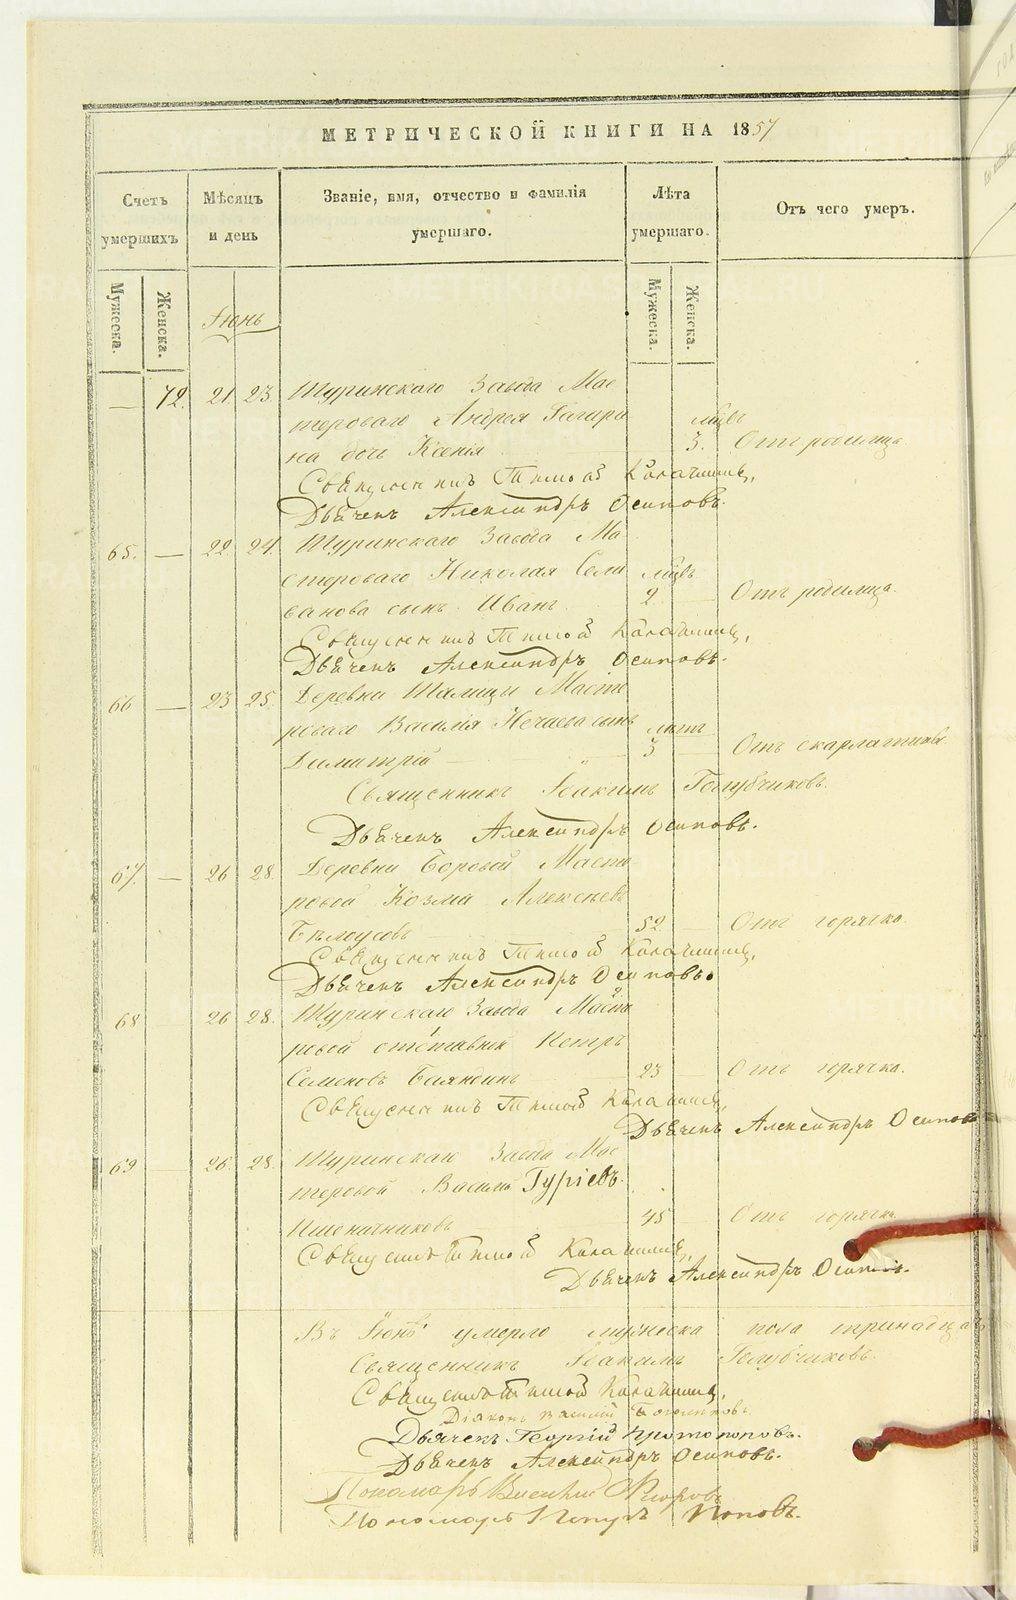 МЕТРИЧЕСКОЙ КНИГИ НА 1857
Счетъ умершихъ
Мѣсяцъ и день
Званіе, имя, отчество и фамилія умершаго.
Лѣта умершаго.
Отъ чего умеръ.
Мужеска.
Женска.
Мужеска.
Женска.
Іюнь
— 72. 21 23 Туринскаго Завода Мас
тероваго Андрея Гагари мѣсц.
на дочь Ксенія 3. Отъ родимца.
Священникъ Тимоѳей
Дьячекъ Александръ Осиповъ.
65. — 22 24 Туринскаго Завода Ма
стероваго Николая Сели
ванова сынъ Иванъ. 2 Отъ родимца.
Священникъ Тимоѳей
Дьячекъ Александръ Осиповъ.
66 — 23 25. Деревни Талицы Масте
роваго Василія Нечаева сынъ лѣтъ
Димитрій 3 Отъ скарлатины
Священникъ Іоакимъ Голубчиковъ.
Дьячекъ Александръ Осиповъ.
67. — 26 28. Деревни Боровой Масте
ровой Козма Алексѣевъ
Бѣлоусовъ 52 Отъ горячки.
Священникъ Тимоѳей
Дьячекъ Александръ Осиповъ.
68 26 28. Туринскаго Завода Масте
ровой отставной Петръ
Семеновъ Баяндинъ 23 Отъ горячки.
Священникъ Тимоѳей
Дьячекъ Александръ Осиповъ
69 26 28. Туринскаго Завода Мас
теровой Василій Гуріевъ.
Пшеничниковъ 45 Отъ горячки.
Священникъ Тимоѳей
Дьячекъ Александръ Осиповъ.
Въ Іюнѣ умерло мужеска пола тринадцать
Священникъ Іоакимъ Голубчиковъ.
Священникъ Тимоѳей
Діаконъ Василій
Дьячекъ Георгій Протопоповъ.
Дьячекъ Александръ Осиповъ.
Пономарь
Пономарь Петръ Поповъ.